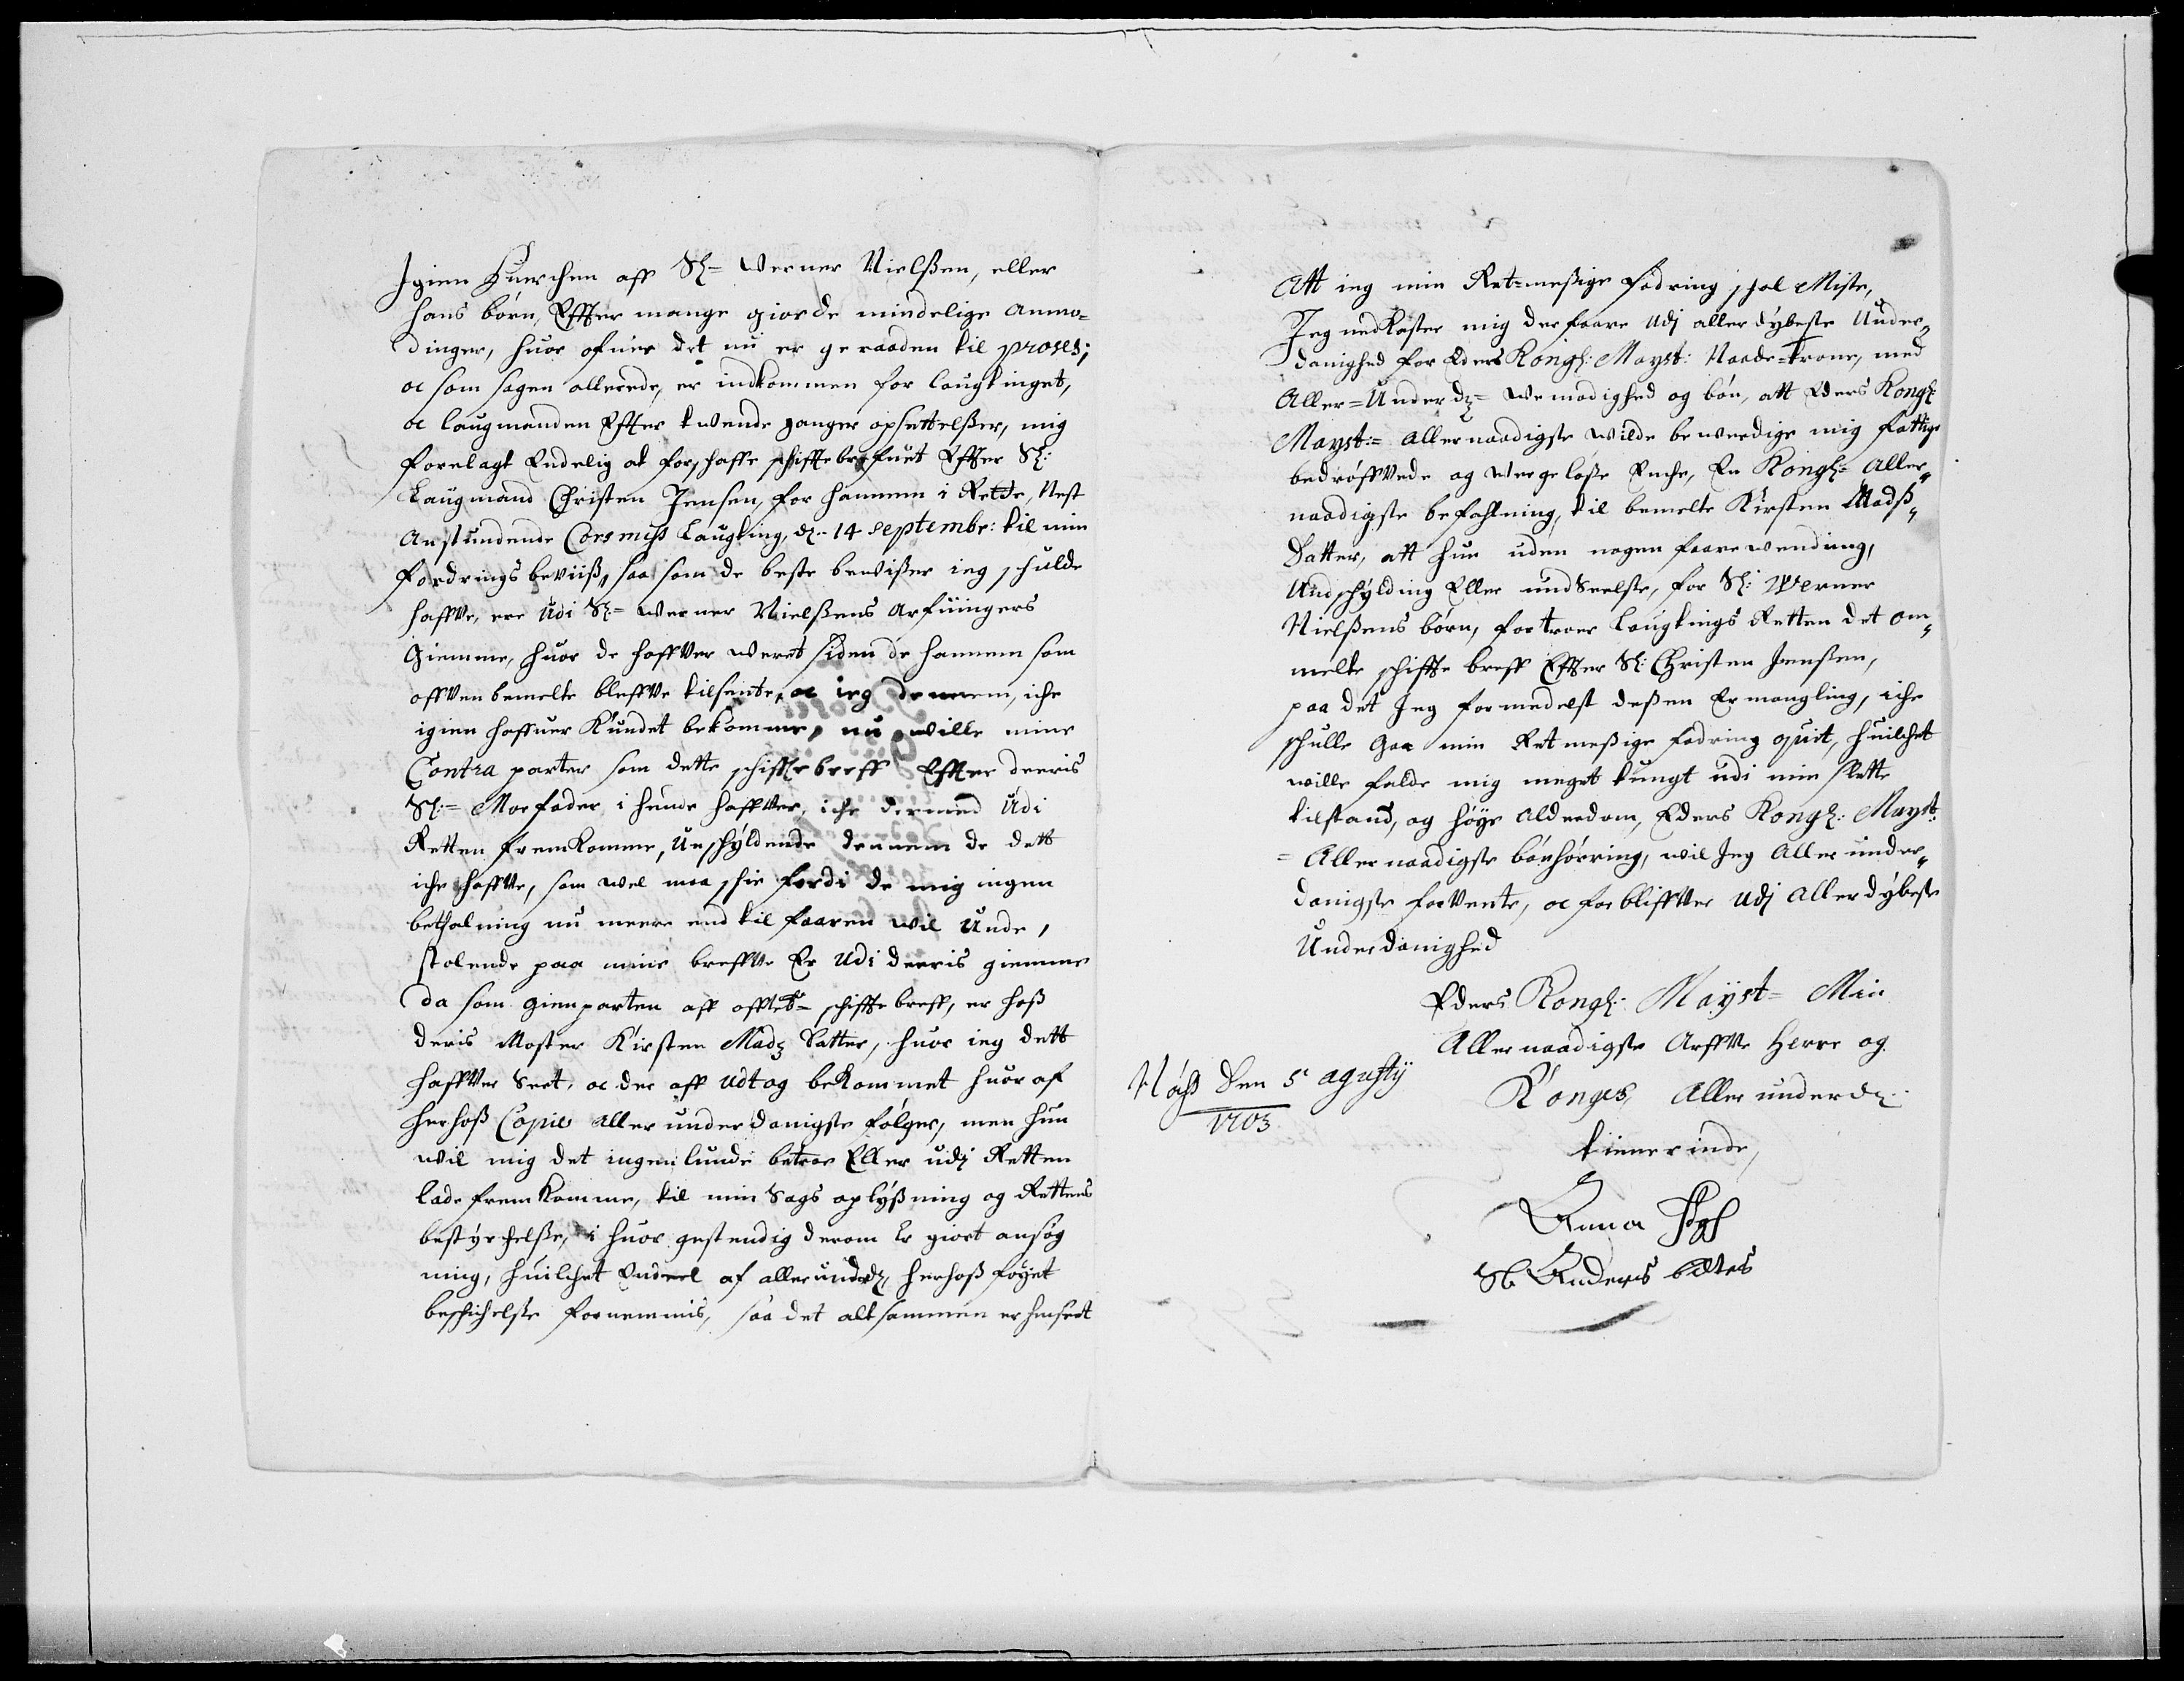 Igien Huerchen aff Sl= Werner Nielßen, eller
hans börn, Effter mange giorde mindelige anmo=
dinger, huor ofuer det nu er geraaden til proses;
oc som sagen allerede, er indkommen for laugtinget,
oc laugmanden Effter tvende ganger opsettelßer, mig
forelagt Endelig at forschaffe schifftebrefuet Effter Sl:
Laugmand Christen Jensen, for hannem i Rette, Nest
Anstundende Corsmiss Laugting, d: 14 Septembr: til min
fordrings beviiß, saa som de beste bewißer ieg schulde
haffve, ere udi Sl= Werner Nielßens Arfuingers
Giemme, huor de haffver weret siden de hannem som
offven bemelte bleffve tilsente, oc ieg dennem, iche
igien haffuer Kundet bekomme, nu wille mine
Contra parter som dette schifftebreff Effter deeris
Sl:= Morfader i hende haffver, iche dermed udi
Retten fremkomme, Unschyldende dennem de dett
iche haffve, som wel maa schie fordi de mig ingen
bethalning nu meere end til faaren wil unde,
stolende paa mine breffve Er udi deeris giemme
da som gienparten aff offtbte schifftebreff, er hoß
deris Moster Kirsten Mads Datter, huor ieg dett
haffver Seet, oc der aff udtog bekommet huor af
herhoß Copie allerunderdanigste følger, men hun
wil mig det ingenlunde betroe Eller udj Retten
lade fremkomme, til min Sags oplyßning og Rettens
bestyrchelße, i huor gestendig derom Er giort ansøg
ning, huilchet Endeel af allerunderd: herhoß føyet
beschichelße fornemmis, saa det altsammen er henseet
Att ieg min Ret=meßige fodring schal Miste,
Jeg nedkaster mig derfaare Udj allerdybeste Under=
danighed for Eders Kongl: Mayst: Naade=trone, med
Aller=Underd:= wemodighed og bön, att Eders Kongl:
Mayst:= allernaadigste wilde bewerdige mig fattige
bedröffvede og wergelöße Enche, En Kongl:= Aller=
naadigste befahlning, til bemelte Kirsten Madß=
Datter, att hun uden nogen faarewending,
Undschylding Eller undseelße, for Sl: Werner
Nielßens börn, fortroer Laugtings Retten det om=
melte schiffte breff Effter Sl: Christen Jenßen,
paa det Jeg formedelst deßen Ermangling, iche
schulle gaa min Retmeßige fodring quit, huilchet
wille falde mig meget tungt udi min slette
tilstand, og höye alderdom, Eders Kongl: Mayst:
= Allernaadigste bönhörring, wil Jeg Allerunder=
danigste forvente, oc forbliffver Udj allerdybeste
Underdanighed
Eders Kongl: Mayst= Min
Allernaadigste Arffve Herre og
Konges, Allerunderd:
tiennerinde,
Den 5 agustij
1703
Anna
Sl Anders